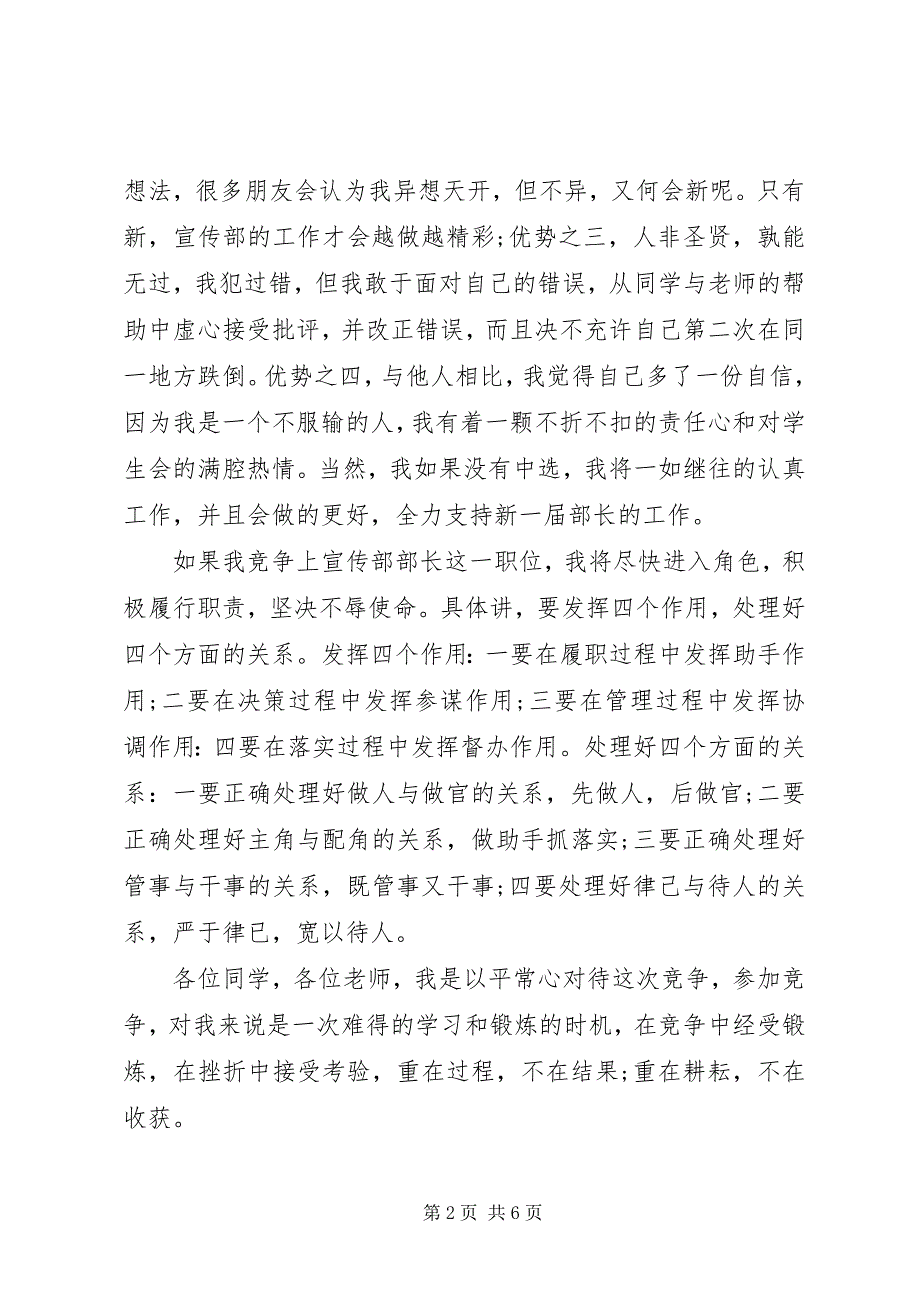 想法，很多朋友会认为我异想天开，但不异，又何会新呢。只有
新，宣传部的工作才会越做越精彩;优势之三，人非圣贤，孰能
无过，我犯过错，但我敢于面对自己的错误，从同学与老师的帮
助中虚心接受批评，并改正错误，而且决不充许自己第二次在同
一地方跌倒。优势之四，与他人相比，我觉得自己多了一份自信，
因为我是一个不服输的人，我有着一颗不折不扣的责任心和对学
生会的满腔热情。当然，我如果没有中选，我将一如继往的认真
工作，并且会做的更好，全力支持新一届部长的工作。
如果我竞争上宣传部部长这一职位，我将尽快进入角色，积
极履行职责，坚决不辱使命。具体讲，要发挥四个作用，处理好
四个方面的关系。发挥四个作用：一要在履职过程中发挥助手作
用;二要在决策过程中发挥参谋作用;三要在管理过程中发挥协
调作用：四要在落实过程中发挥督办作用。处理好四个方面的关
系：一要正确处理好做人与做官的关系，先做人，后做官;二要
正确处理好主角与配角的关系，做助手抓落实;三要正确处理好
管事与干事的关系，既管事又干事;四要处理好律己与待人的关
系，严于律已，宽以待人。
各位同学，各位老师，我是以平常心对待这次竞争，参加竞
争，对我来说是一次难得的学习和锻炼的时机，在竞争中经受锻
炼，在挫折中接受考验，重在过程，不在结果;重在耕耘，不在
收获。
第 2 页 共 6 页